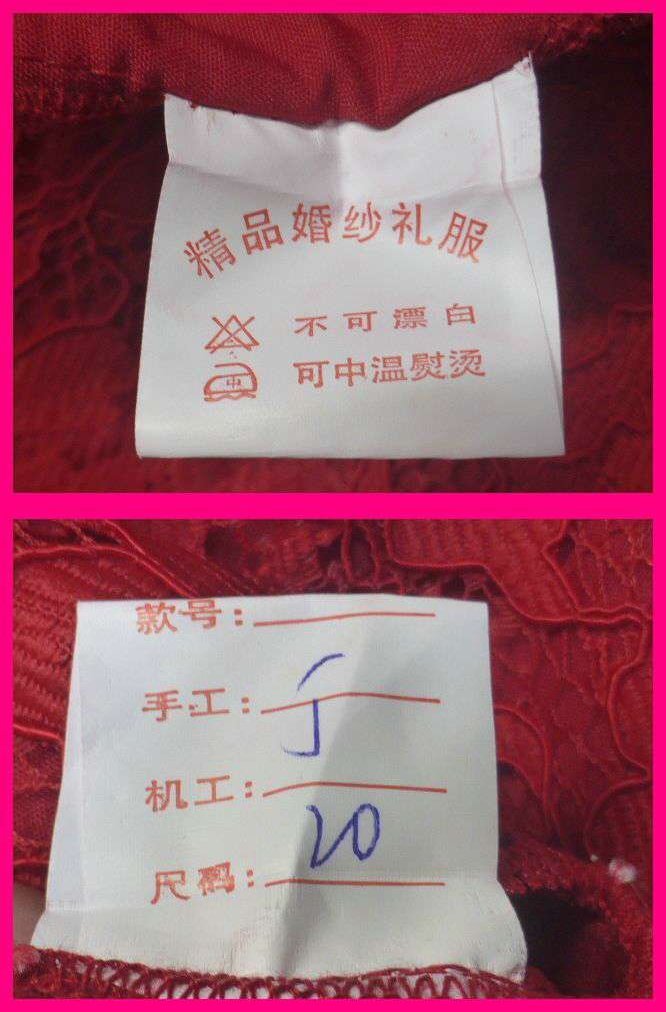 精品婚纱礼服
不可漂白
中
可中温熨烫
款号:
手工:
机工:
20
尺码: